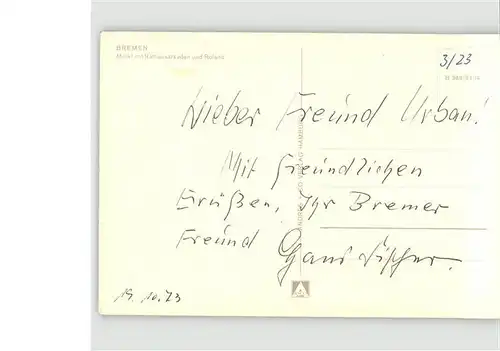 BREMEN
Markt mit Rathausarkaden und Roland
3/23
Lieber Freund Urban!
Mit freundlichen
Grüßen, Ihr Bremer
Freund Hans Fischer.
19. 10. 73